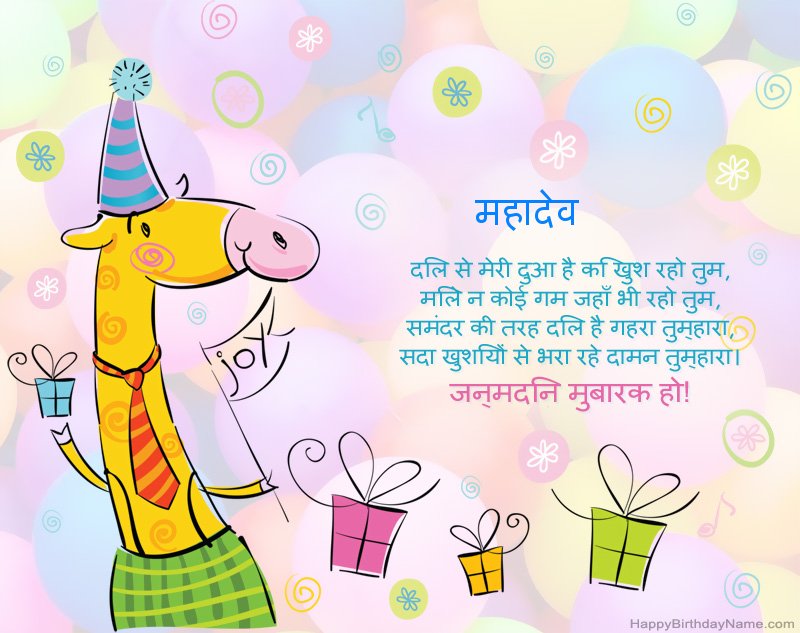 महादेव
दिल से मेरी दुआ है कि खुश रहो तुम,
मिले न कोई गम जहाँ भी रहो तुम,
समंदर की तरह दिल है गहरा तुम्हारा,
सदा खुशियों से भरा रहे दामन तुम्हारा।
जन्मदिन मुबारक हो!
joy
HappyBirthdayName.com